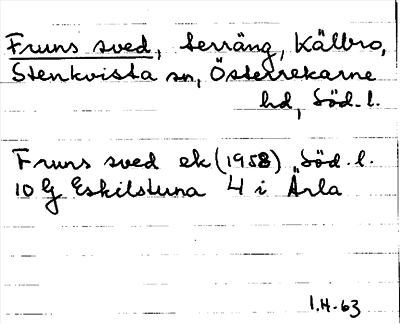 Fruns sved, terräng, Kälbro,
Stenkvista sn, Österrekarne
hd, Söd. l.
Fruns sved ek (1958) Söd. l.
10 G Eskilstuna 4 i Ärla
I.H-63